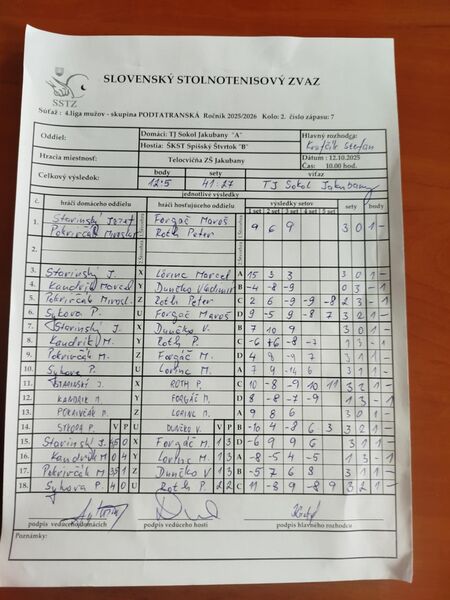 SSTZ
SLOVENSKÝ STOLNOTENISOVÝ ZVAZ
Súťaž : 4.liga mužov - skupina PODTATRANSKÁ Ročník 2025/2026 Kolo: 2. číslo zápasu: 7
Oddiel: Domáci: TJ Sokol Jakubany "A" Hlavný rozhodca:
Hostia: ŠKST Spišský Štvrtok "B" Krafčík Štefan
Hracia miestnosť: Telocvičňa ZŠ Jakubany Dátum : 12.10.2025
Čas: 10.00 hod.
Celkový výsledok: body sety víťaz
12:5 41:27 TJ Sokol Jakubany
jednotlivé výsledky
č. hráči domáceho oddielu hráči hosťujúceho oddielu výsledky setov sety body
1 set 2 set 3 set 4 set 5 set
1. Stavinský Jozef Forgáč Maroš 9 6 9 3 0 1 -
Pokrivčák Miroslav Roth Peter
2.
3. Stavinský J. X Lorinc Marcel A 15 3 3 3 0 1 -
4. Kandrik Marcel Y Dunčko Vladimír B -4 -8 -9 0 3 - 1
5. Pokrivčák Mirosl. Z Roth Peter C 2 6 -9 -9 -8 2 3 - 1
6. Sykova P. U Forgáč Maroš D 9 -5 9 -8 7 3 2 1 -
7. Stavinský J. X Dunčko V. B 7 10 9 3 0 1 -
8. Kandrik M. Y Roth P. C -6 +6 -8 -7 1 3 - 1
9. Pokrivčák M. Z Forgáč M. D 4 8 -9 7 3 1 1 -
10. Sykova P. U Lorinc M. A 7 9 -14 6 3 1 1 -
11. STAVINSKÝ J. X ROTH P. C 10 -8 -9 10 11 3 2 1 -
12. KANDRIK M. Y FORGÁČ M. D 8 -8 -7 -9 1 3 - 1
13. POKRIVČÁK M. Z LORINC M. A 9 8 6 3 0 1 -
14. V P U DUNČKO V. V P B -10 4 -8 6 3 3 2 1 -
15. Stavinský J. X Forgáč M. 1 3 D -6 9 9 6 3 1 1 -
16. Kandrik M. 0 4 Y Lorinc M. 1 3 A -8 -5 4 -5 1 3 - 1
17. Pokrivčák M. Z Dunčko V 1 3 B -5 7 6 8 3 1 1 -
18. Sykova P. 4 0 U Roth P. 2 2 C 11 -8 9 -8 9 3 2 1 -
podpis vedúceho domácich podpis vedúceho hostí podpis hlavného rozhodcu
Poznámky: